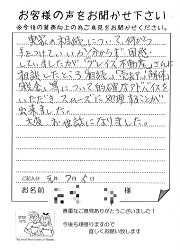 お客様の声をお聞かせ下さい
※今後の業務向上の為ご意見をお聞かせください。
実家の相続について、何から
手をつけていいか分からず困惑し
ていましたが グレイス不動産さんに
相談したところ 相続、売却、解体
税金 等について 的確なアドバイスを
いただき スムーズに処理することが
出来ました。
大変お世話になりました。
ご記入日 月 7日
お名前 様
貴重なご意見ありがとうございました！
今後も頑張りますので
宜しくお願い致します